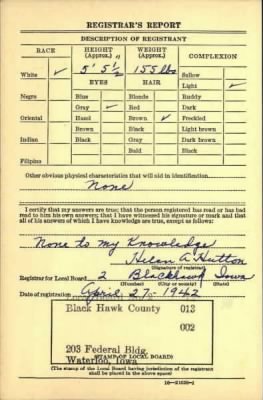 REGISTRAR'S REPORT
DESCRIPTION OF REGISTRANT
RACE HEIGHT (Approx.) WEIGHT (Approx.) COMPLEXION
White ✓ 5' 5½ 155 lbs Sallow
EYES HAIR Light ✓
Negro Blue Blonde Ruddy
Gray ✓ Red Dark
Oriental Hazel Brown ✓ Freckled
Brown Black Light brown
Indian Black Gray Dark brown
Bald Black
Filipino
Other obvious physical characteristics that will aid in identification
None
I certify that my answers are true; that the person registered has read or has had
read to him his own answers; that I have witnessed his signature or mark and that
all of his answers of which I have knowledge are true, except as follows:
None to my Knowledge
Helen A Hutton
(Signature of registrar)
Registrar for Local Board 2 Blackhawk Iowa
(Number) (City or county) (State)
Date of registration April 27-1942
Black Hawk County 013
002
203 Federal Bldg.
(STAMP OF LOCAL BOARD)
Waterloo, Iowa
(The stamp of the Local Board having jurisdiction of the registrant
shall be placed in the above space)